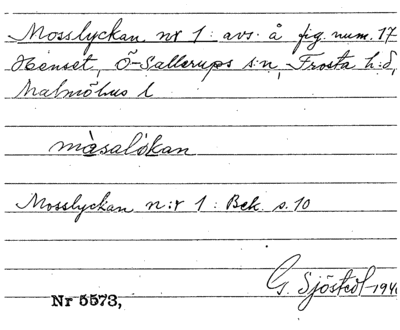 Mosslyckan nr 1: avs. å fig. num. 17
Hänset, Ö-Sallerups s:n, Frosta h:d,
Malmöhus l
måsalökan
Mosslyckan n:r 1: Bek. s. 10
G. Sjöstedt 194
Nr 5573,